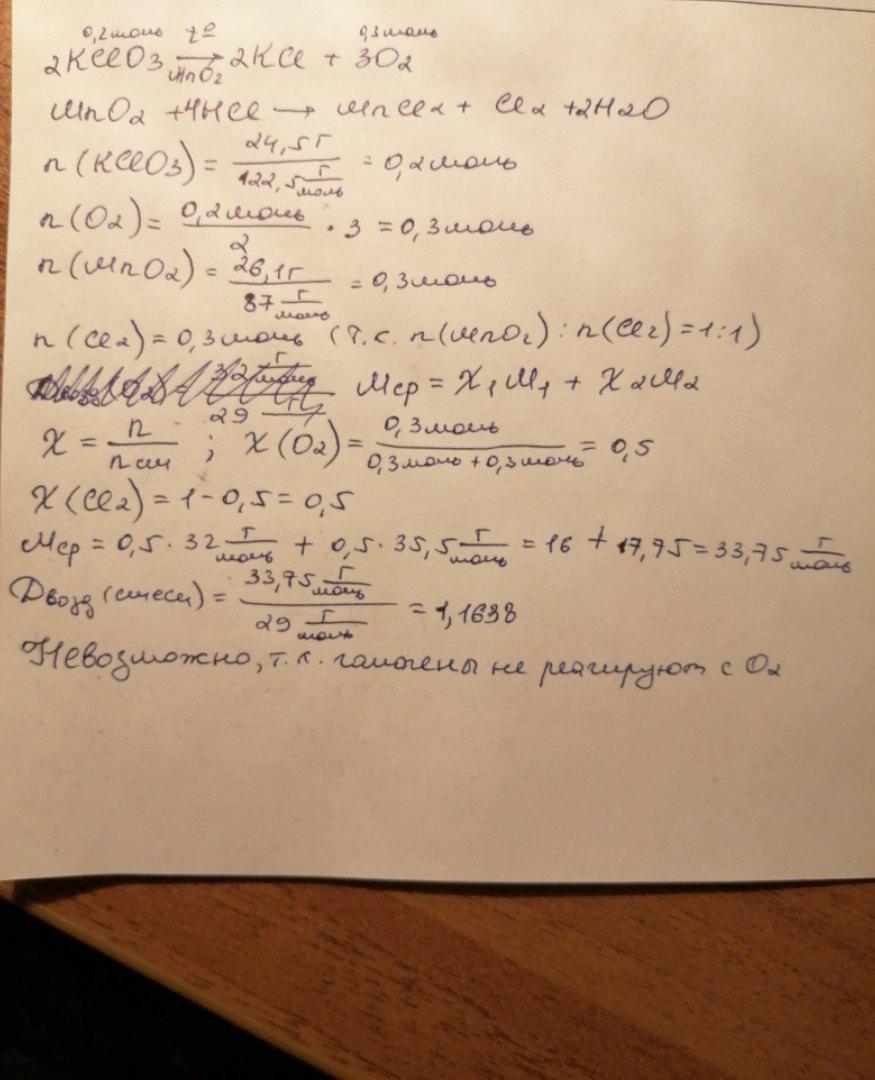 0,2 моль t° 0,3 моль
2KClO3 → 2KCl + 3O2
MnO2
MnO2 + 4HCl → MnCl2 + Cl2 + 2H2O
n (KClO3) = 24,5 г / 122,5 г/моль = 0,2 моль
n (O2) = 0,2 моль / 2 · 3 = 0,3 моль
n (MnO2) = 26,1 г / 87 г/моль = 0,3 моль
n (Cl2) = 0,3 моль (т.с. n(MnO2) : n(Cl2) = 1:1)
Mср = X1M1 + X2M2
X = n / nсм ; X (O2) = 0,3 моль / 0,3 моль + 0,3 моль = 0,5
X (Cl2) = 1 - 0,5 = 0,5
Mср = 0,5 · 32 г/моль + 0,5 · 35,5 г/моль = 16 + 17,75 = 33,75 г/моль
Dвозд (смеси) = 33,75 г/моль / 29 г/моль = 1,1638
Невозможно, т.к. галогены не реагируют с O2